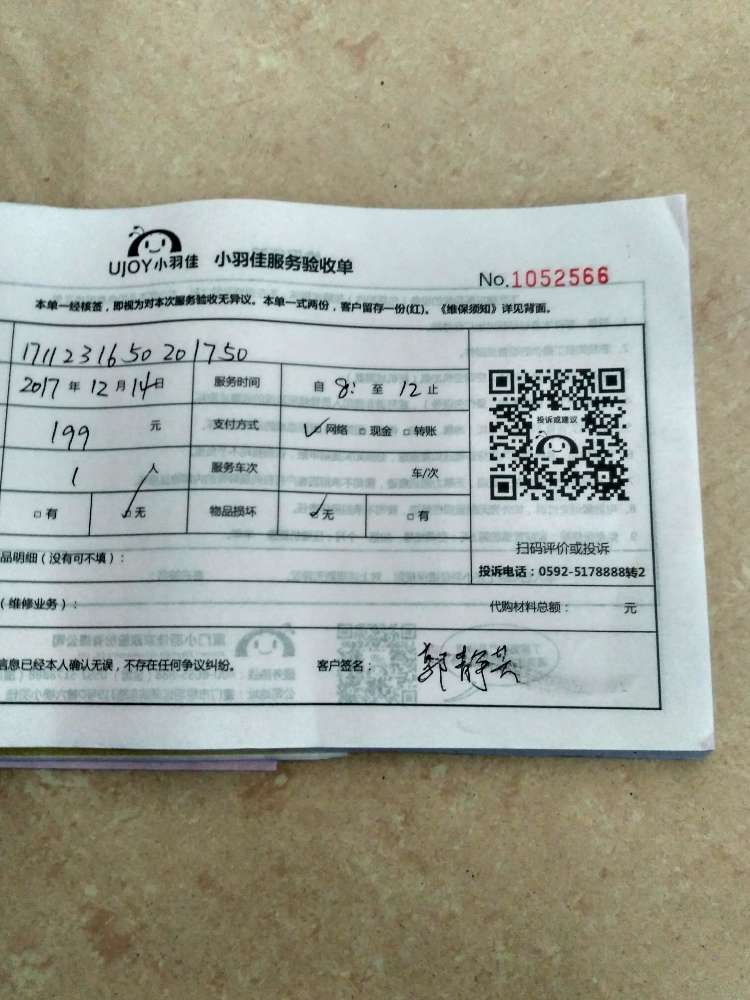 UJOY小羽佳 小羽佳服务验收单
No.1052566
本单一经核签，即视为对本次服务验收无异议。本单一式两份，客户留存一份(红)。《维保须知》详见背面。
1711231650201750
2017年12月14日 服务时间 自8:至12止
199元 支付方式 ✓□网络 □现金 □转账
投诉或建议
1人 服务车次 车/次
□有 □无 物品损坏 □无 □有
扫码评价或投诉
品明细（没有可不填）：
投诉电话：0592-5178888转2
（维修业务）： 代购材料总额： 元
信息已经本人确认无误，不存在任何争议纠纷。 客户签名： 郭静芸